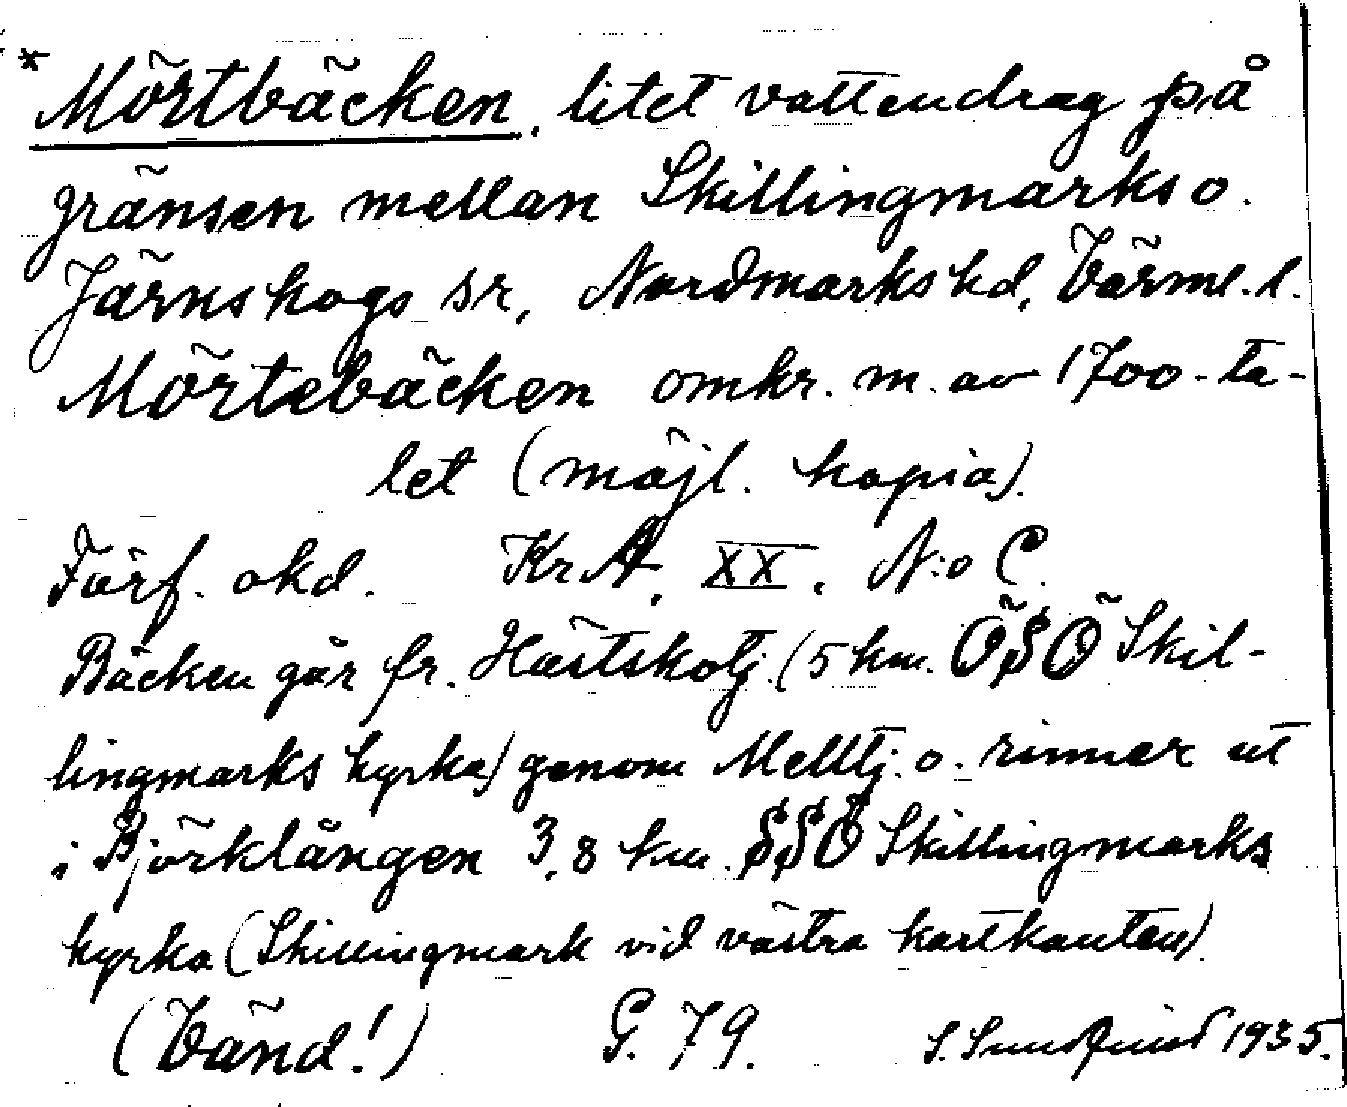 * Mörtbäcken, litet vattendrag på
gränsen mellan Skillingmarks o.
Järnskogs sr, Nordmarks hd, Värml. l.
Mörtebäcken omkr. m. av 1700-ta-
let (möjl. kopia).
Förf. okd. KrA, XX, N:o C.
Bäcken går fr. Hästskotj. (5 km. ÖSÖ Skil-
lingmarks kyrka) genom Melltj. o. rinner ut
i Björklången 3,8 km. SSÖ Skillingmarks
kyrka (Skillingmark vid västra kartkanten).
(Vänd!) G. 79. S. 1935.